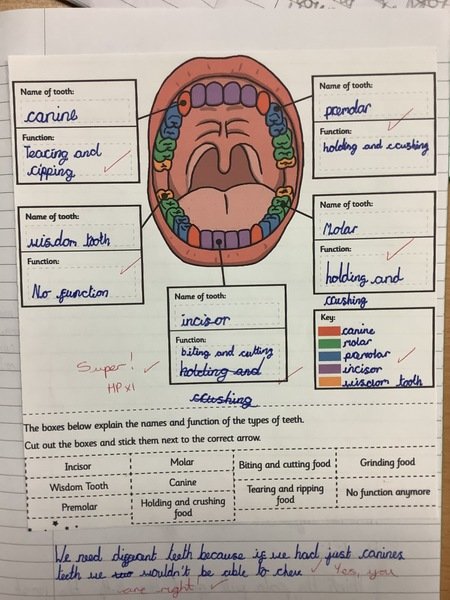 Name of tooth:
canine
Function:
Tearing and
ripping
Name of tooth:
premolar
Function:
holding and crushing
Name of tooth:
wisdom tooth
Function:
No function
Name of tooth:
Molar
Function:
holding and
crushing
Name of tooth:
incisor
Function:
biting and cutting
holding and
crushing
Key:
canine
molar
premolar
incisor
wisdom tooth
Super!
HP x1
The boxes below explain the names and function of the types of teeth.
Cut out the boxes and stick them next to the correct arrow.
Incisor
Molar
Biting and cutting food
Grinding food
Wisdom Tooth
Canine
Tearing and ripping
food
No function anymore
Premolar
Holding and crushing
food
We need different teeth because if we had just canines
teeth we wouldn't be able to chew Yes, you
are right